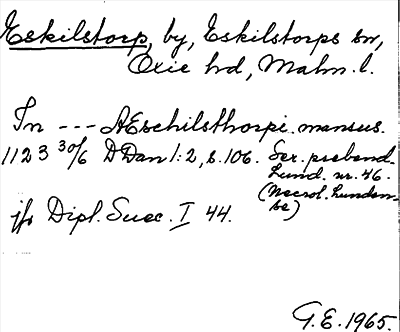 Eskilstorp, by, Eskilstorps sn,
Oxie hd, Malm. l.
In --- AEschilsthorpi. mansus.
1123 30/6 DDan 1:2, s. 106. Ser. prebend.
Lund. nr. 46.
(Necrol. Lunden-
se)
jfr Dipl. Suec. I 44.
G.E. 1965.